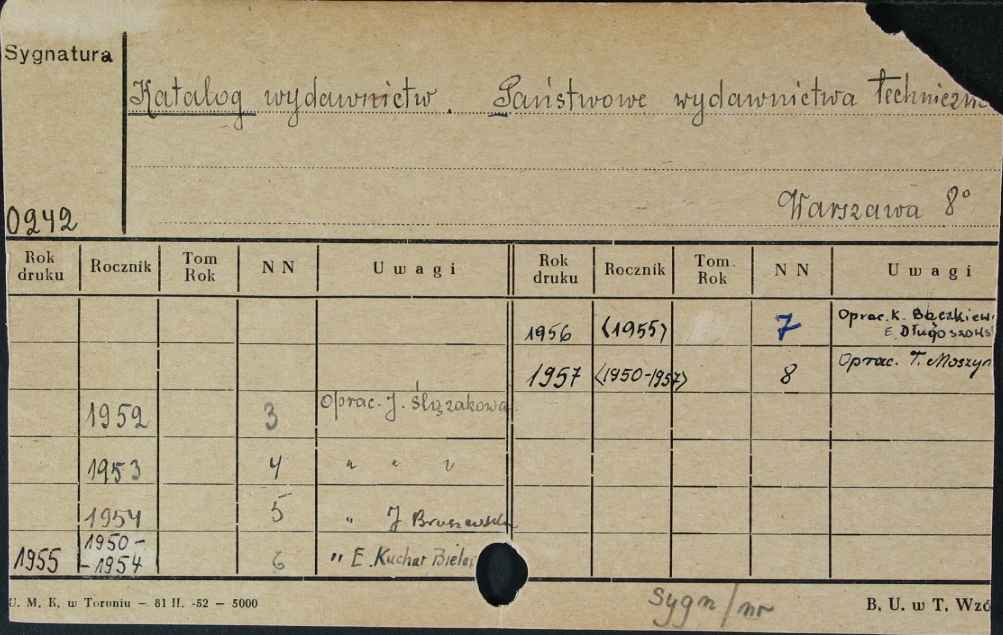 Sygnatura
Katalog wydawnictw. Państwowe wydawnictwa techniczne
Warszawa 8°
0242
Rok druku Rocznik Tom Rok N N Uwagi Rok druku Rocznik Tom Rok N N Uwagi
1956 (1955) 7 Oprac. K. Bączkiew
E. Długoszows
1957 (1950-1957) 8 Oprac. T. Moszyń
1952 3 Oprac. J. Ślązakowa
1953 4 " " "
1954 5 " J Bruszewska
1955 1950-
-1954 6 " E. Kuchar Biela
U. M. K. w Toruniu — 81 II. -52 — 5000
Sygn/nr
B. U. w T. Wzó